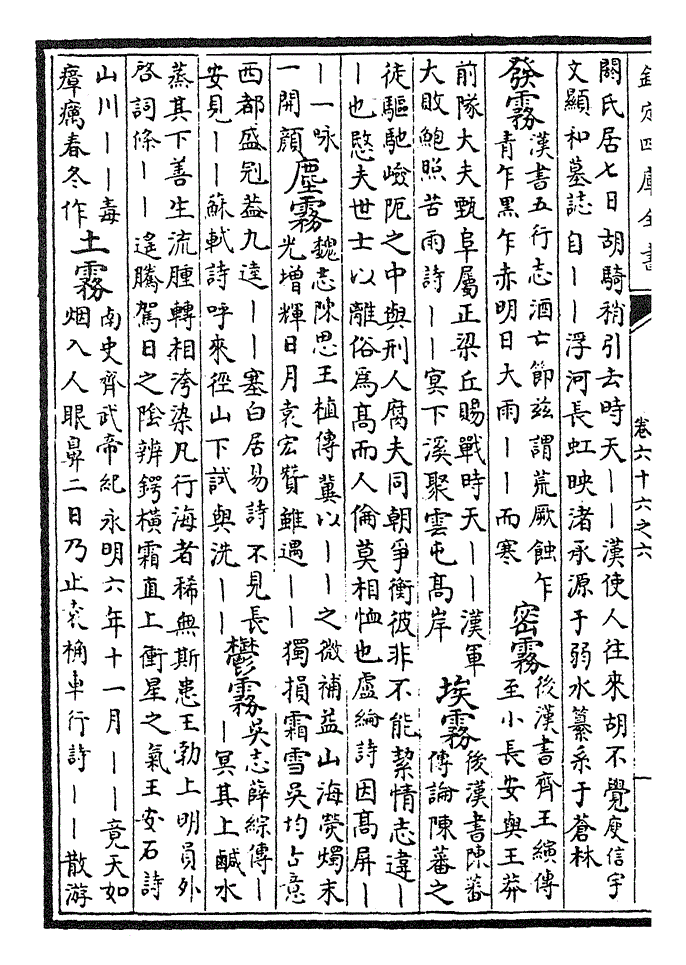 欽定四庫全書
卷六十六之六
一
閼氏居七日胡騎稍引去時天丨丨漢使人往來胡不覺庾信宇
文顯和墓誌自丨丨浮河長虹映渚承源于弱水纂系于蒼林
發霧
漢書五行志酒亡節茲謂荒厥蝕乍
青乍黑乍赤明日大雨丨丨而寒
密霧
後漢書齊王縯傳
至小長安與王莽
前隊大夫甄阜屬正梁丘賜戰時天丨丨漢軍
大敗鮑照苦雨詩丨丨冥下溪聚雲屯髙岸
埃霧
後漢書陳蕃
傳論陳蕃之
徒驅馳嶮阨之中與刑人腐夫同朝爭衡彼非不能絜情志違丨
丨也愍夫世士以離俗爲髙而人倫莫相恤也盧綸詩因髙屏丨
丨一咏
一開顔
塵霧
魏志陳思王植傳冀以丨丨之微補益山海熒燭末
光增輝日月袁宏贊雖遇丨丨獨損霜雪吳均占意
西都盛冠葢九逵丨丨塞白居易詩不見長
安見丨丨蘇軾詩呼來徑山下試與洗丨丨
鬱霧
吳志薛綜傳丨
丨冥其上鹹水
蒸其下善生流腫轉相洿染凡行海者稀無斯患王勃上明員外
啓詞條丨丨遙騰駕日之隂辨鍔橫霜直上衝星之氣王安石詩
山川丨丨毒
瘴癘春冬作
土霧
南史齊武帝紀永明六年十一月丨丨竟天如
烟入人眼鼻二日乃止袁桷車行詩丨丨散游